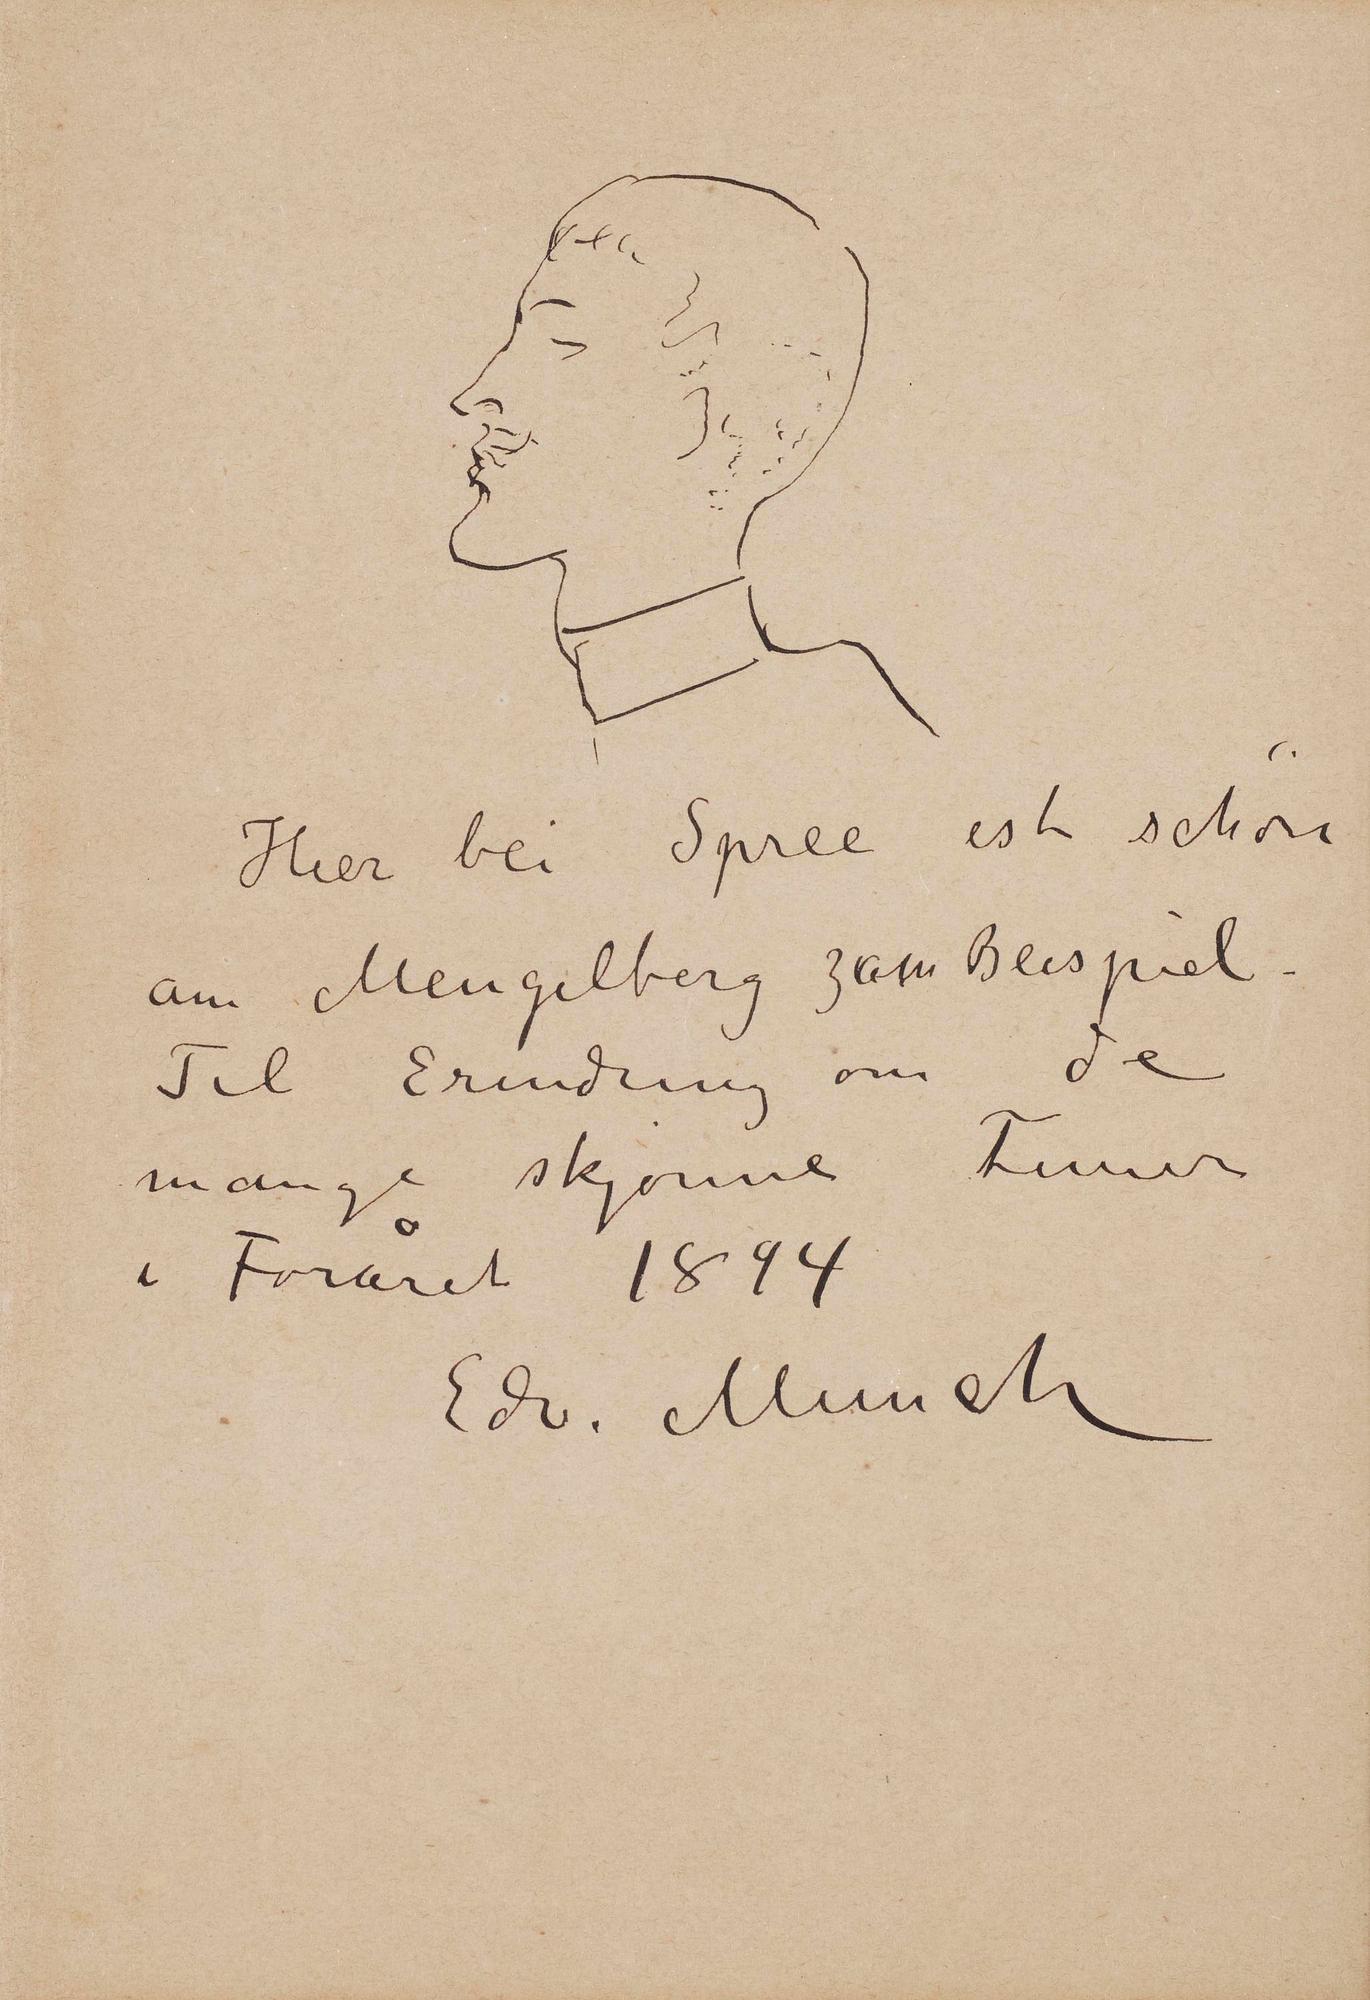 Hier bei Spree est schön
am Mengelberg zam Beispiel -
Til Erindring om de
mange skjønne Timer
i Foråret 1894
Edv. Munch